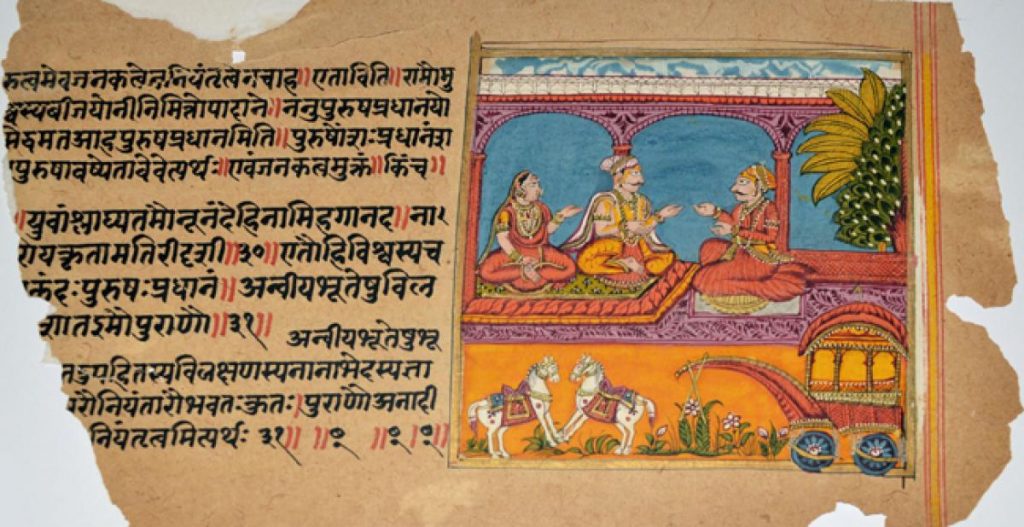 कत्वमेवजनकत्वेन नियंतृत्वेनचाह॥एताविति॥रामोमु
स्यबीजयोनीनिमित्तोपादाने॥ननुपुरुषप्रधानयो
मतआहपुरुषप्रधानमिति॥पुरुषोंशःप्रधानंशा
पुरुषावप्येतावेवेत्यर्थः॥एवंजनकत्वमुक्तं॥किंच
॥युवांश्लाघ्यतमौनूनंदेहिनामिहमानद॥नारा
यत्कृतामतिरीदृशी॥३०॥एतौहिविश्वस्यच
पुरुषःप्रधानं॥अन्वीयभूतेषुविल
शातइमौपुराणौ॥३१॥
अन्वीयभूतेषुभू
पहितस्यविलक्षणस्यनानाभेदस्यज्ञा
रौनियंतारौभवतःकुतः॥पुराणौअनादी
नियंतृत्वमित्यर्थः ३१॥